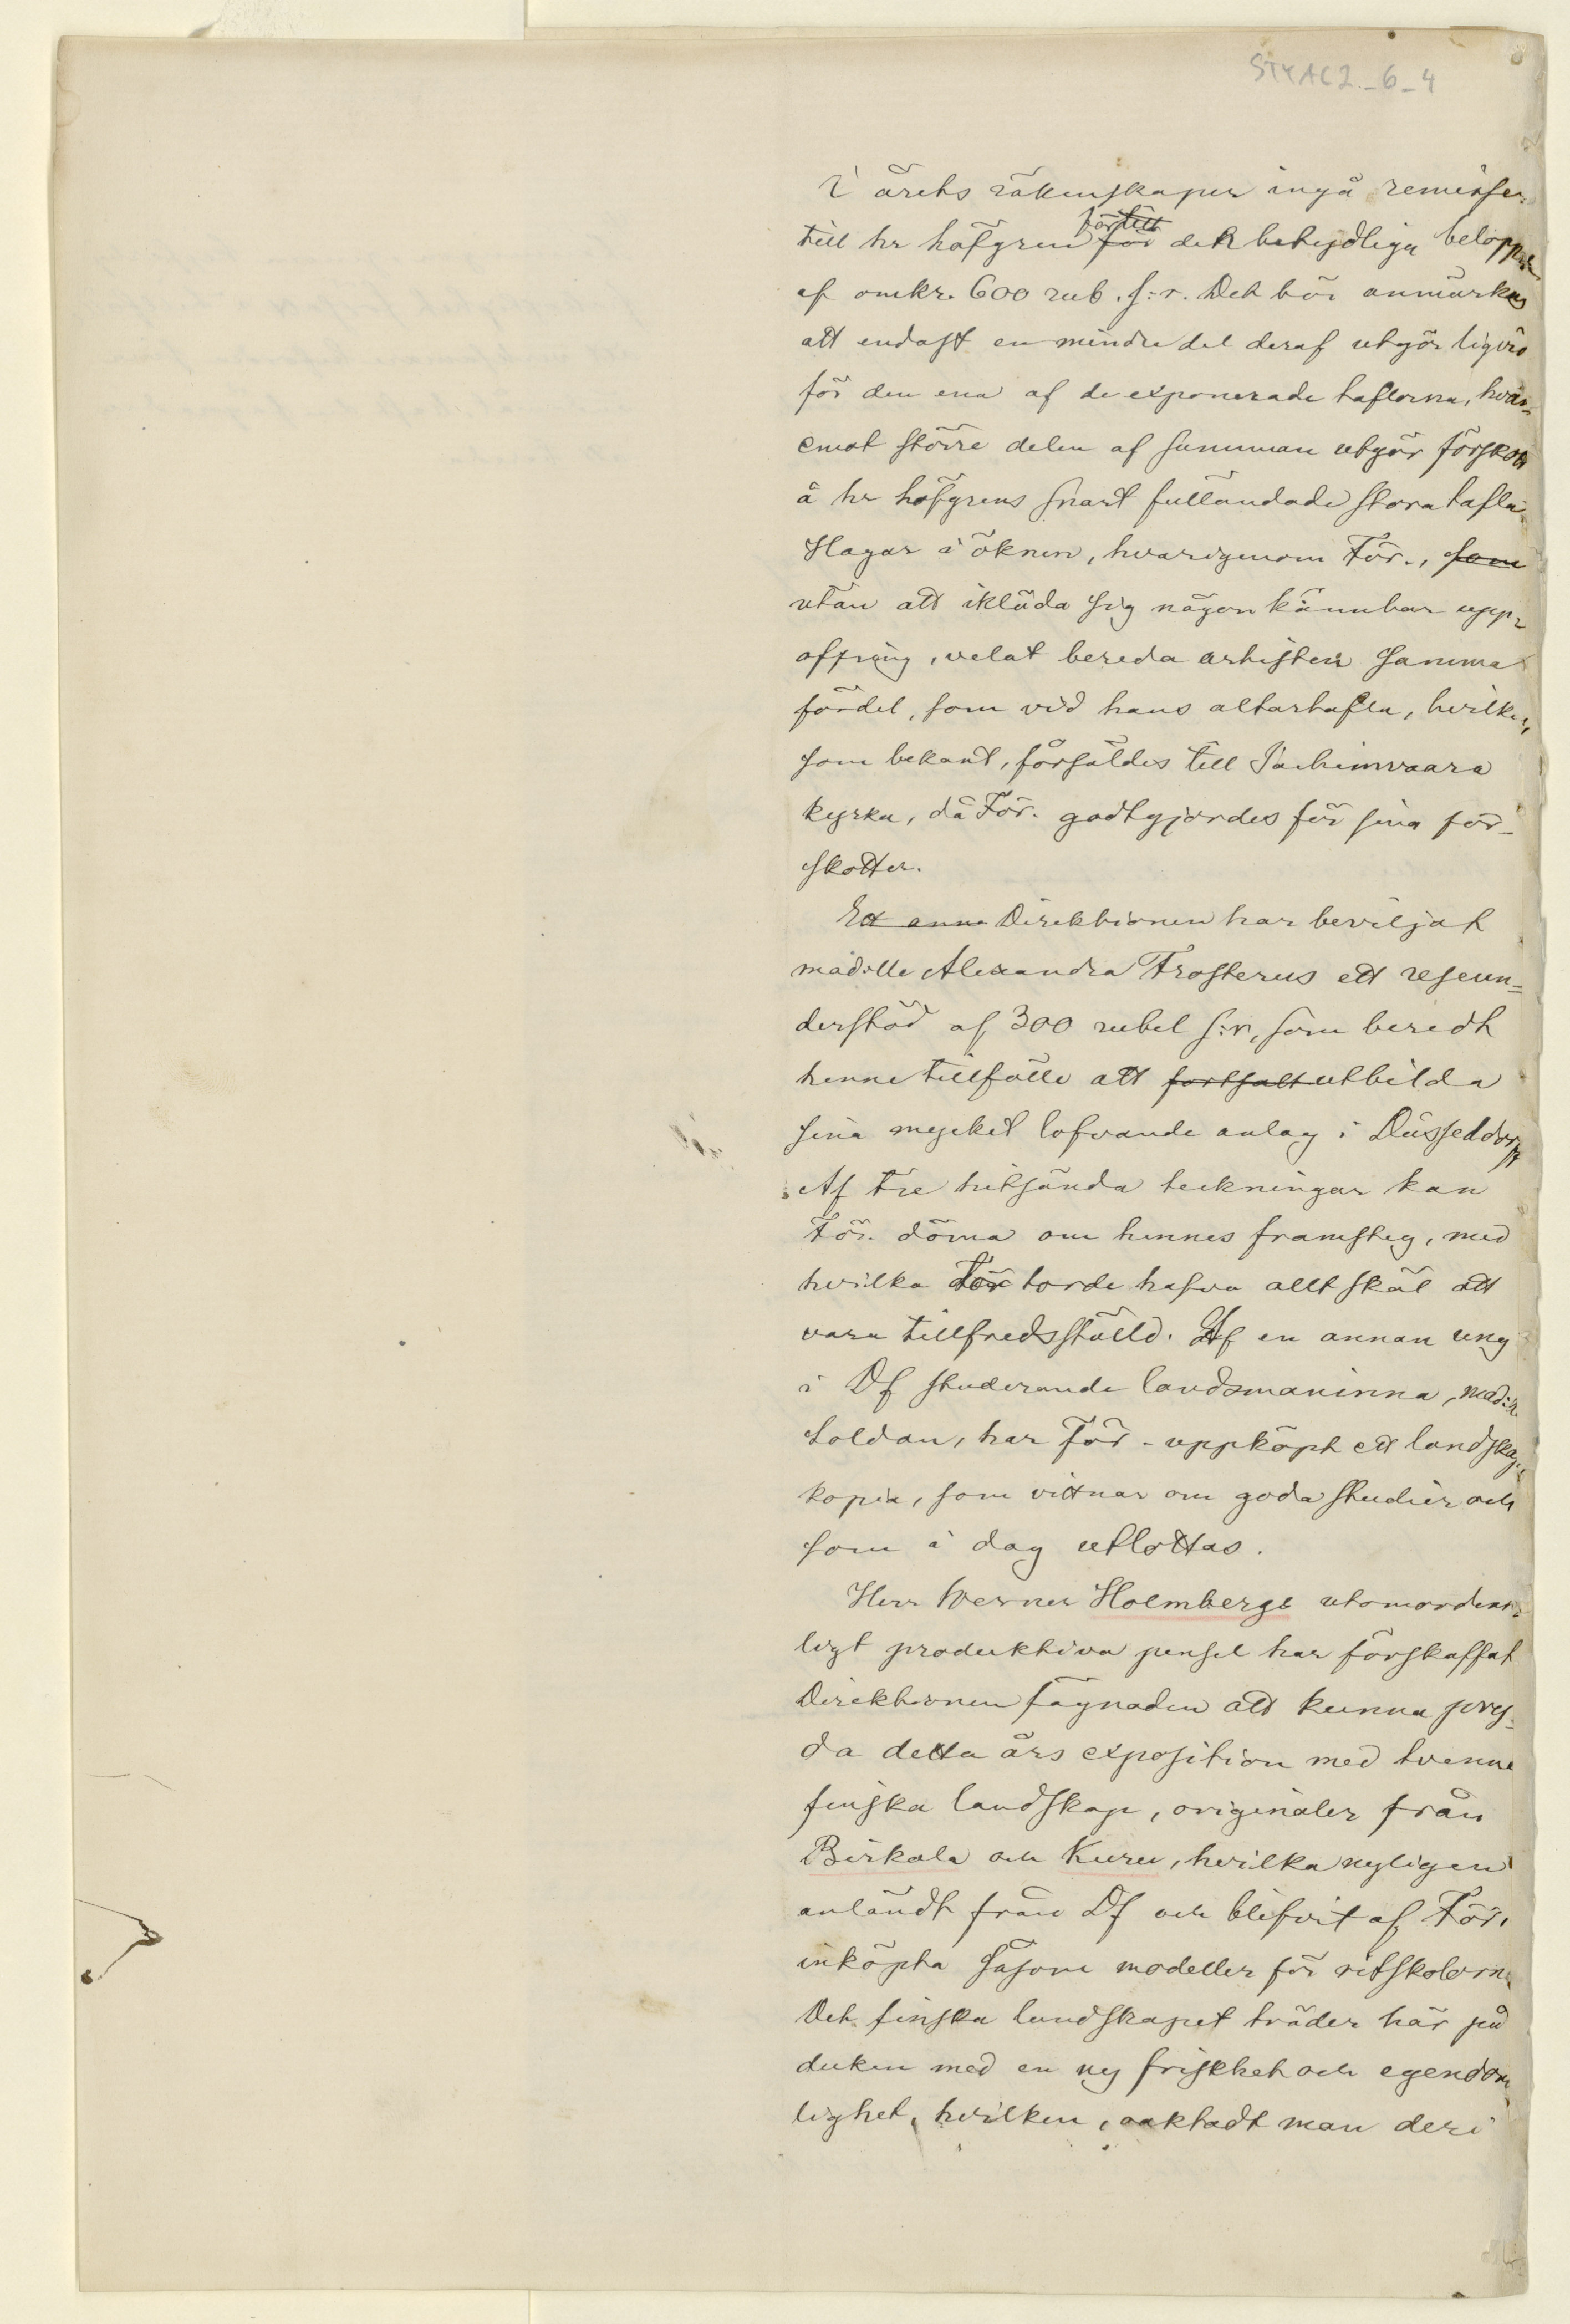 STYAC2_6_4
I årets räkenskaper ingå remisser
till hr Löfgren för till för det betydliga beloppet
af omkr. 600 rub. s:r. Det bör anmärkas
att endast en mindre del deraf utgör liqvid
för den ena af de exponerade taflorna, hvar-
emot större delen af summan utgör förskott
å hr Löfgrens snart fulländade stora tafla
Hagar i öknen, hvarigenom För., som
utan att ikläda sig någon kännbar upp-
offring, velat bereda artisten samma
fördel, som vid hans altartafla, hvilken,
som bekant, försåldes till Jochimvaara
kyrka, då För. godtgjordes för sina för-
skotter.
Ett anna Direktionen har beviljat
mad:lle Alexandra Frosterus ett reseun-
derstöd af 300 rubel s:r, som beredt
henne tillfälle att fortsatt utbilda
sina mycket lofvande anlag i Düsseldorf
Af tre hitsända teckningar kan
För. döma om hennes framsteg, med
hvilka För torde hafva allt skäl att
vara tillfredsställd. Af en annan ung
i Df studerande landsmaninna, mad:lle
Soldan, har För. uppköpt ett landskap,
kopia, som vittnar om goda studier och
som i dag utlottas.
Herr Werner Holmbergs utomordent-
ligt produktiva pensel har förskaffat
Direktionen fägnaden att kunna pry-
da detta års exposition med tvenne
finska landskap, originaler från
Birkala och Kuru, hvilka nyligen
anländt från Df och blifvit af För.
inköpta såsom modeller för ritskolorna
Det finska landskapet träder här på
duken med en ny friskhet och egendom
lighet, hvilken, oaktadt man deri